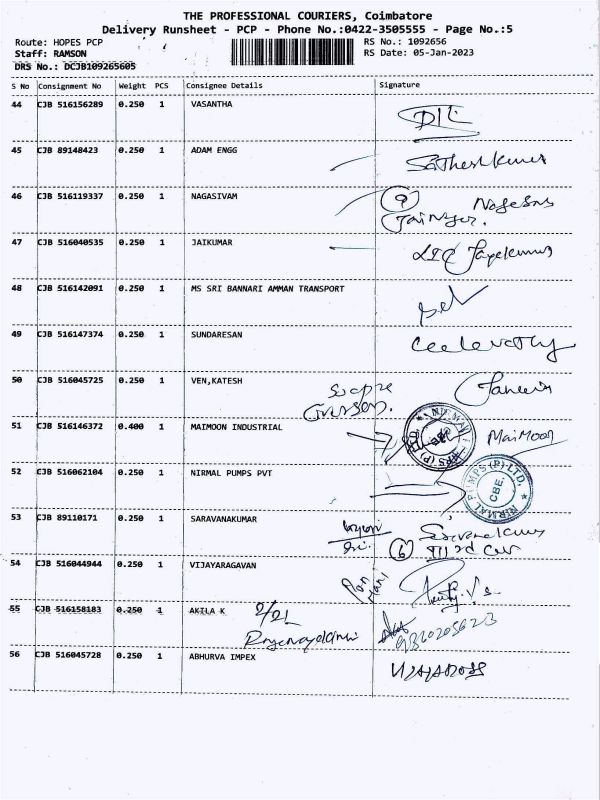 THE PROFESSIONAL COURIERS, Coimbatore
Delivery Runsheet - PCP - Phone No.:0422-3505555 - Page No.:5
Route: HOPES PCP
RS No.: 1092656
Staff: RAMSON
RS Date: 05-Jan-2023
DRS No.: DCJB109265605
S No Consignment No Weight PCS Consignee Details Signature
44 CJB 516156289 0.250 1 VASANTHA
45 CJB 89148423 0.250 1 ADAM ENGG Satheshkumar
46 CJB 516119337 0.250 1 NAGASIVAM
47 CJB 516040535 0.250 1 JAIKUMAR
48 CJB 516142091 0.250 1 MS SRI BANNARI AMMAN TRANSPORT
49 CJB 516147374 0.250 1 SUNDARESAN
50 CJB 516045725 0.250 1 VEN,KATESH
51 CJB 516146372 0.400 1 MAIMOON INDUSTRIAL MaiMoon
52 CJB 516062104 0.250 1 NIRMAL PUMPS PVT
NIRMAL PUMPS (P) LTD. CBE.
53 CJB 89110171 0.250 1 SARAVANAKUMAR
54 CJB 516044944 0.250 1 VIJAYARAGAVAN
55 CJB 516158183 0.250 1 AKILA K
56 CJB 516045728 0.250 1 ABHURVA IMPEX